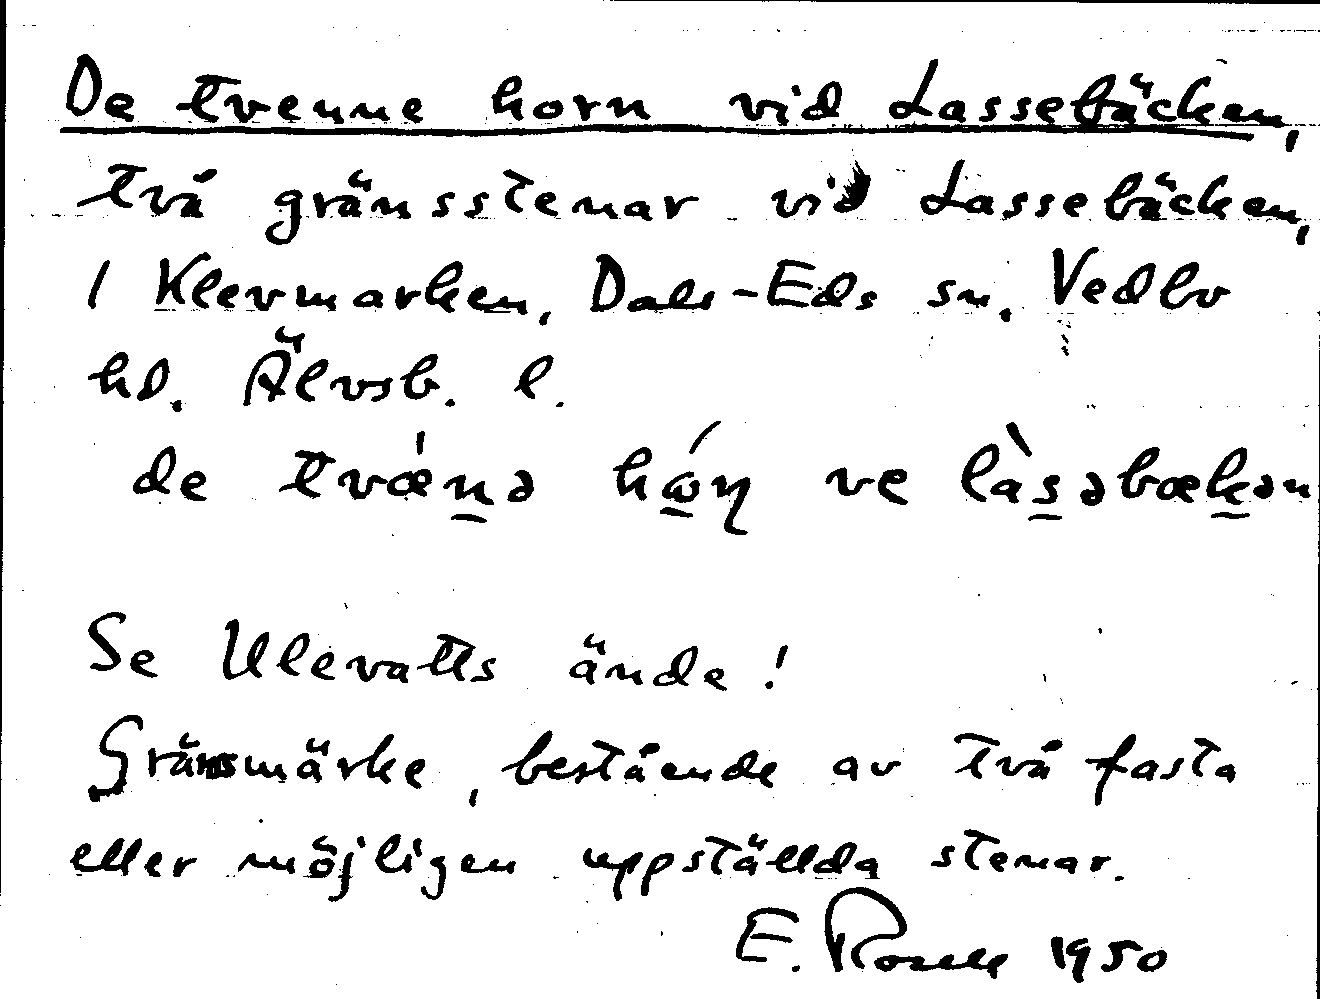 De tvenne horn vid Lassebäcken,
två gränsstenar vid Lassebäcken,
i Klevmarken, Dals-Eds sn. Vedbo
hd. Älvsb. l.
de tvǽnə hɷ́ɳ ve làsəbækən
Se Ulevatts ände!
Gränsmärke, bestående av två fasta
eller möjligen uppställda stenar.
E. Rosell 1950